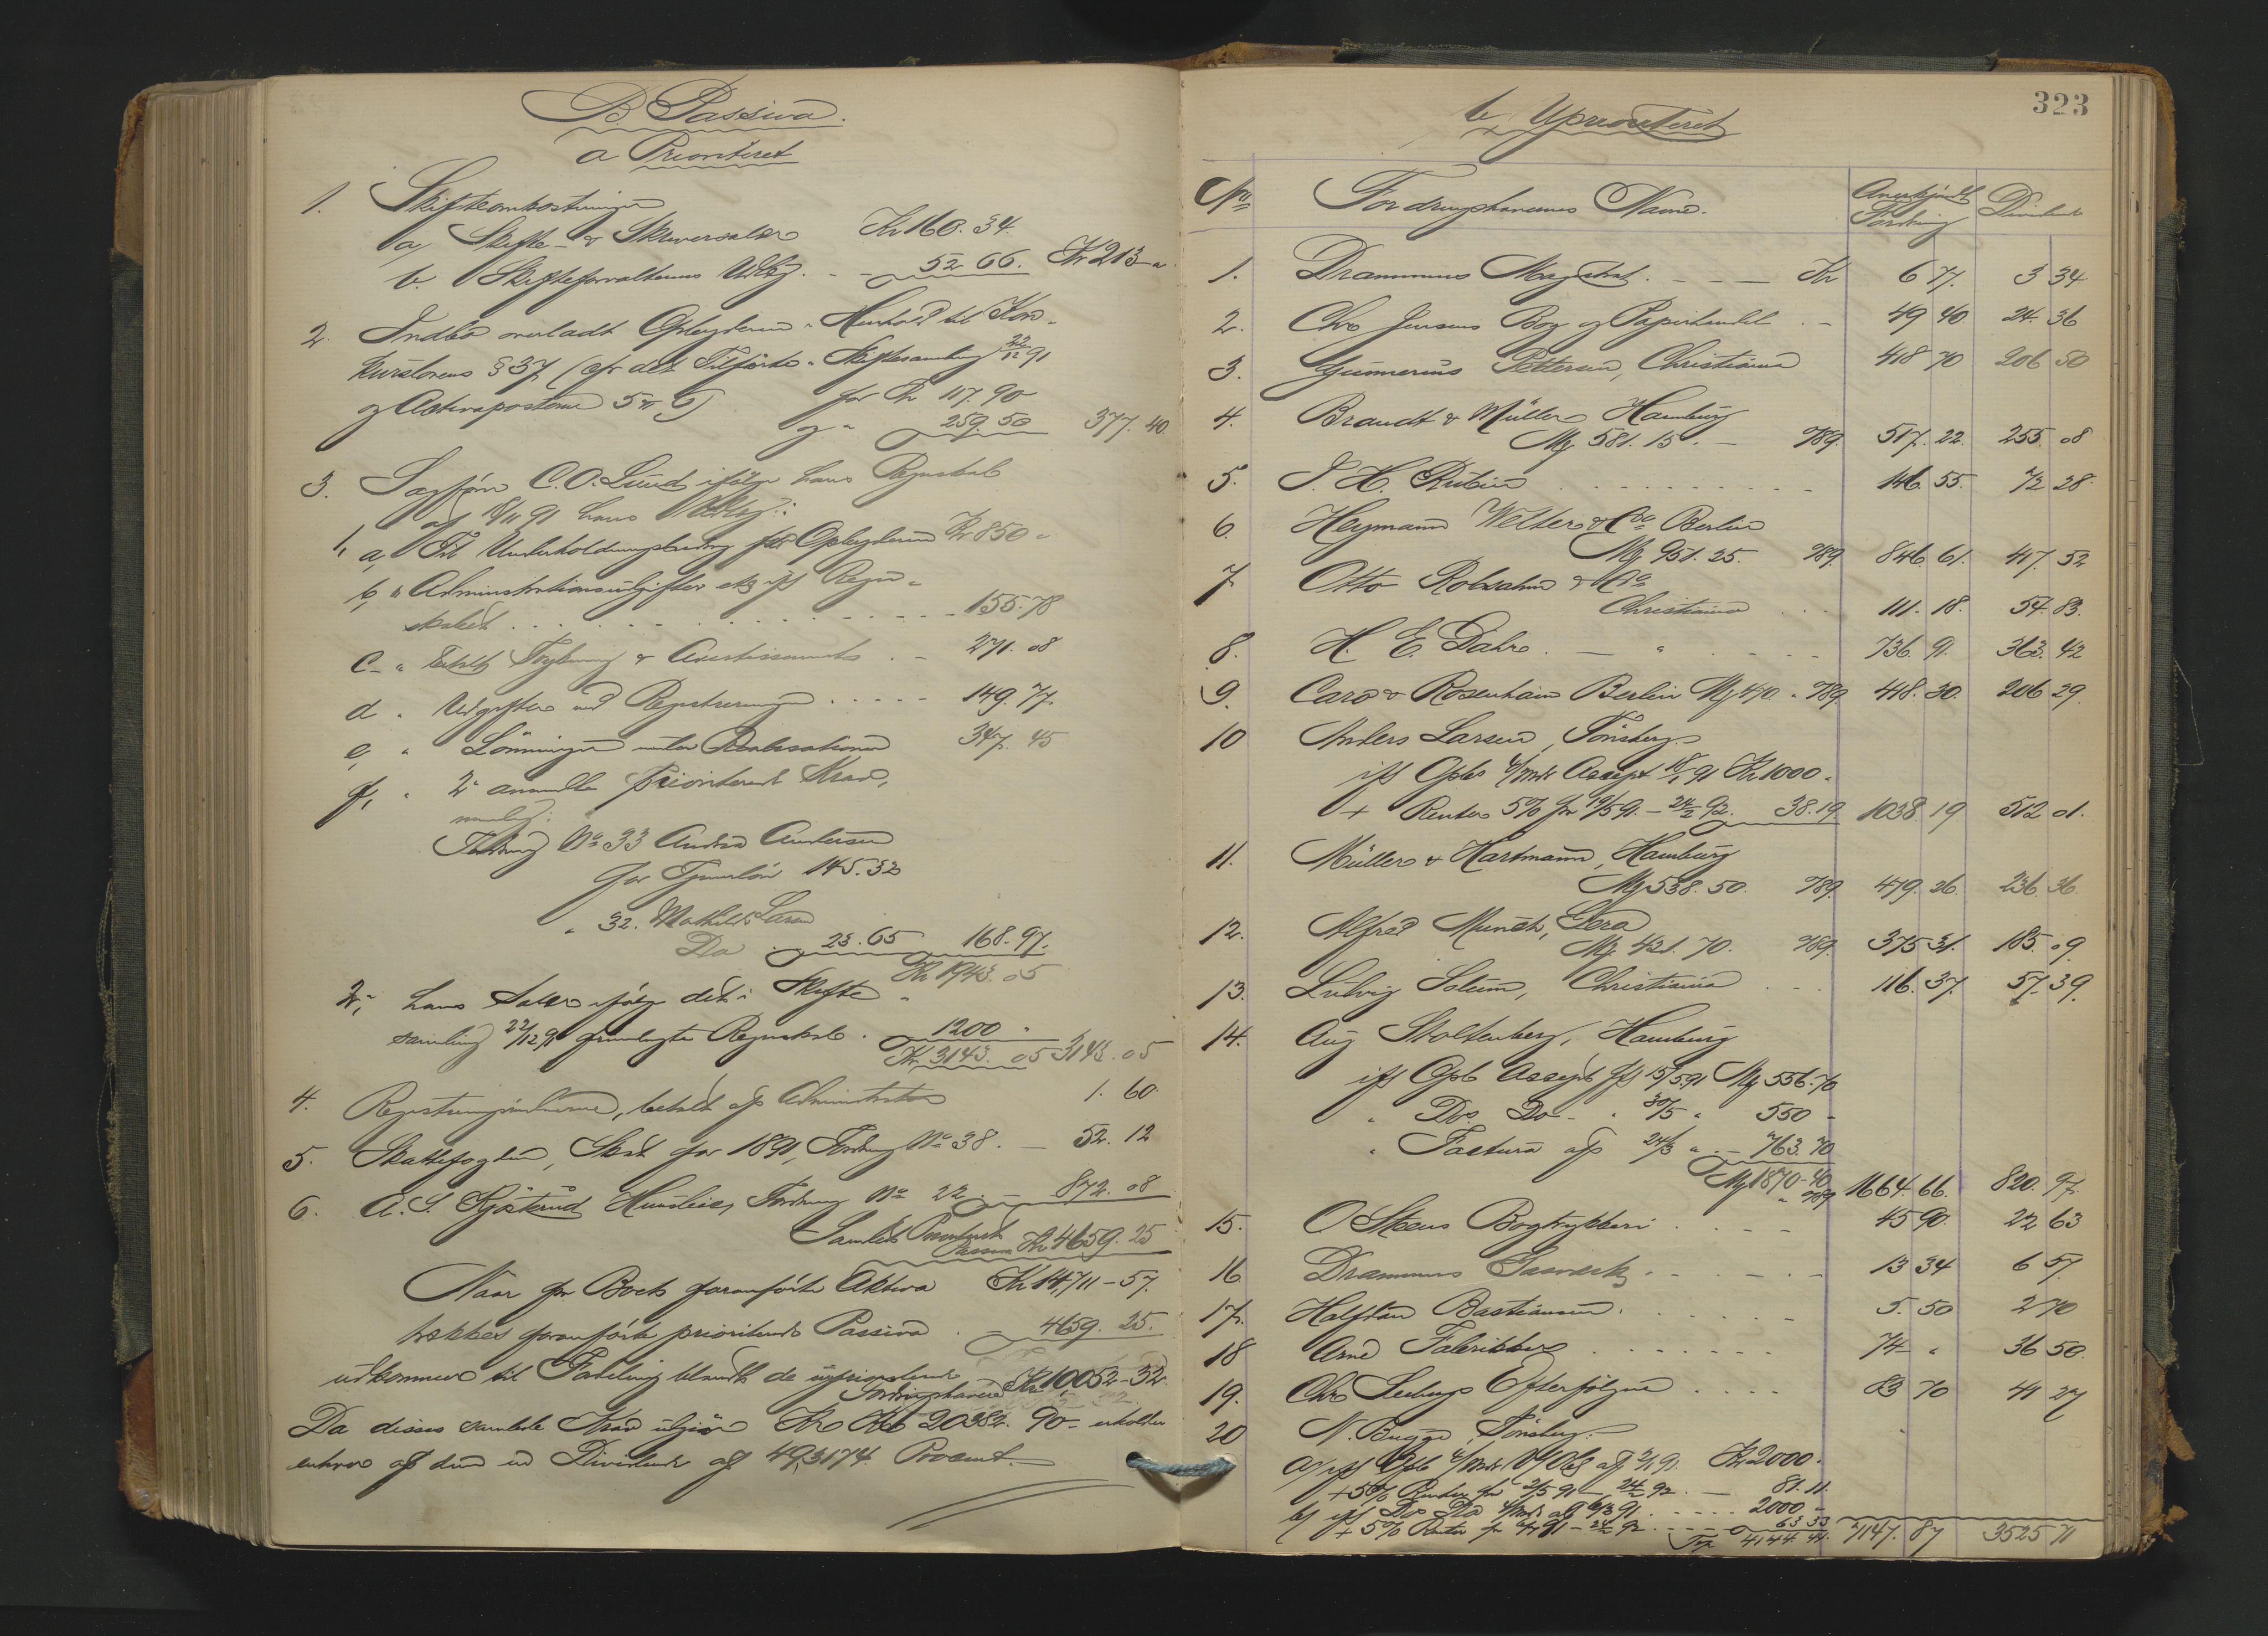 B. Passiva.
a Prioriteret
1. Skifteomkostninger
a, Skifte- & Skriversalær Kr 160. 34.
b. Skifteforvalterens Udlæg. - - 52 66. Kr 213 "
2. Indbo overladt Opbyderen i Henhold til Kon-
kurslovens § 37 (cfr det Tilførte i Skiftesamling 22/12 91
og Activaposterne 5 & 6) for Kr 117. 90
og " 259. 50 377. 40.
3. Sagfører C. O. Lund ifølge hans Regnskab
af 18/11 91 hans Udlæg:
1, a, Til Underholdningsbidrag for Opbyderen Kr 850 "
b, " Administrationsudgifter etc ifl Regn-
skabet . . . . . . 155. 78
c - " betalt Toglønning & Avertissements . - 271. 08
d " Udgifter ved Registreringen . . . . 149. 77
e, " Lønninger under Realisationen 347. 45
f, " 2 anmeldte prioriterede Krav,
nemlig:
Fordring No 33 Andrea Andersen
for Tjenerløn 145. 32
" 32. Mathilde Larsen
Do 23. 65 168. 97.
Kr 1943. 05
2, hans Salær ifølge det i Skifte-
samling 22/12 91 fremlagte Regnskab . 1200 "
Kr. 3143. 05 3143. 05
4. Registreringsmændene, betalt af Administrator 1. 60.
5. Skattefogden, Skat for 1891, Fordring No 38. - 52. 12
6. A. S. Kjøsterud Husleie, Fordring No 22 - 872. 08
Samlet Prioriteret
Passiva Kr 4659. 25
Naar fra Boets foranførte Aktiva Kr 14,711 - 57.
trækkes foranførte prioriterede Passiva . - 4659. 25.
udkommer til Fordeling blandt de uprioriterede
Fordringshavere Kr 10052 - 32.
Da disses samlede Krav udgjør Kr 20382. 90 - erholder
enhver af dem en Dividende af 49,3174 Procent.
323
b, Uprioriteret
No Fordringshavernes Navne. Anerkjendt Fordring Dividende
1. Drammens Magistrat . - - - Kr 6 77. 3 34
2. Chr Jensens Bog og Papirhandel . - 49 40 24. 36
3. Gunnerius Pettersen, Christiania 418 70 206 50
4. Brandt & Müller Hamburg
Mk 581. 15 . - 789. 517. 22. 255. 08
5. J. H. Rubin . . . . . 146. 55. 72 28
6. Heymann Welter & Co Berlin
Mk 951. 25. 789. 846. 61. 417. 52
7 Otto Robsahm & Co
Christiania . . . 111. 18. 54. 83.
8. H. E. Dahr . - " . . . 736. 91. 363. 42
9. Caro & Rosenhain Berlin Mk 470 . 789 418. 30. 206 29.
10 Anders Larsen, Tønsberg
ifl Opbs 4/mdr Accept 18/1 91 Kr 1000 -
+ Renter 5% fra 19/5 91 - 24/2 92. 38. 19 1038 19 512 01.
11. Müller & Hartmann, Hamburg
Mk 538. 50. 789. 479. 26. 236. 36
12. Alfred Munch, Gera
Mk 421. 70. 789. 375 31. 185. 09
13. Ludvig Solum, Christiania . . . 116. 37. 57. 39.
14. Aug Stoltenberg, Hamburg
ifl Opb Accept ifl 15/5 91 Mk 556. 70
" Do. Do - " 30/5 " 550 -
" Factura af 24/3 " - 763. 70
Mk 1870 - 40
" 789. 1664. 66. 820. 97
15. O Steens Bogtrykkeri . . . . 45 90. 22 63
16 Drammens Gasværk . - - . - 13 34 6 57
17. Halfdan Bastiansen . . . . . 5. 50 2 70
18 Arne Fabritius . . . . . 74 - " 36 50.
19. Chr Seebergs Efterfølgere . . . . 83 70 41 27
20 N. Bugge, Tønsberg. -
a, ifl Opb 4/mdr af 2/1 91. Kr 2000 -
+ 5% Renter fra 2/5 91 - 24/2 92. - 81. 11.
b, ifl Do Do 4/mdr af 6/3 91 . . . . 2000. -
+ 5% Renter fra 6/7 91 - 24/2 92 . . . 63 33
Tr. 4144. 44. 7147. 87 3525 71